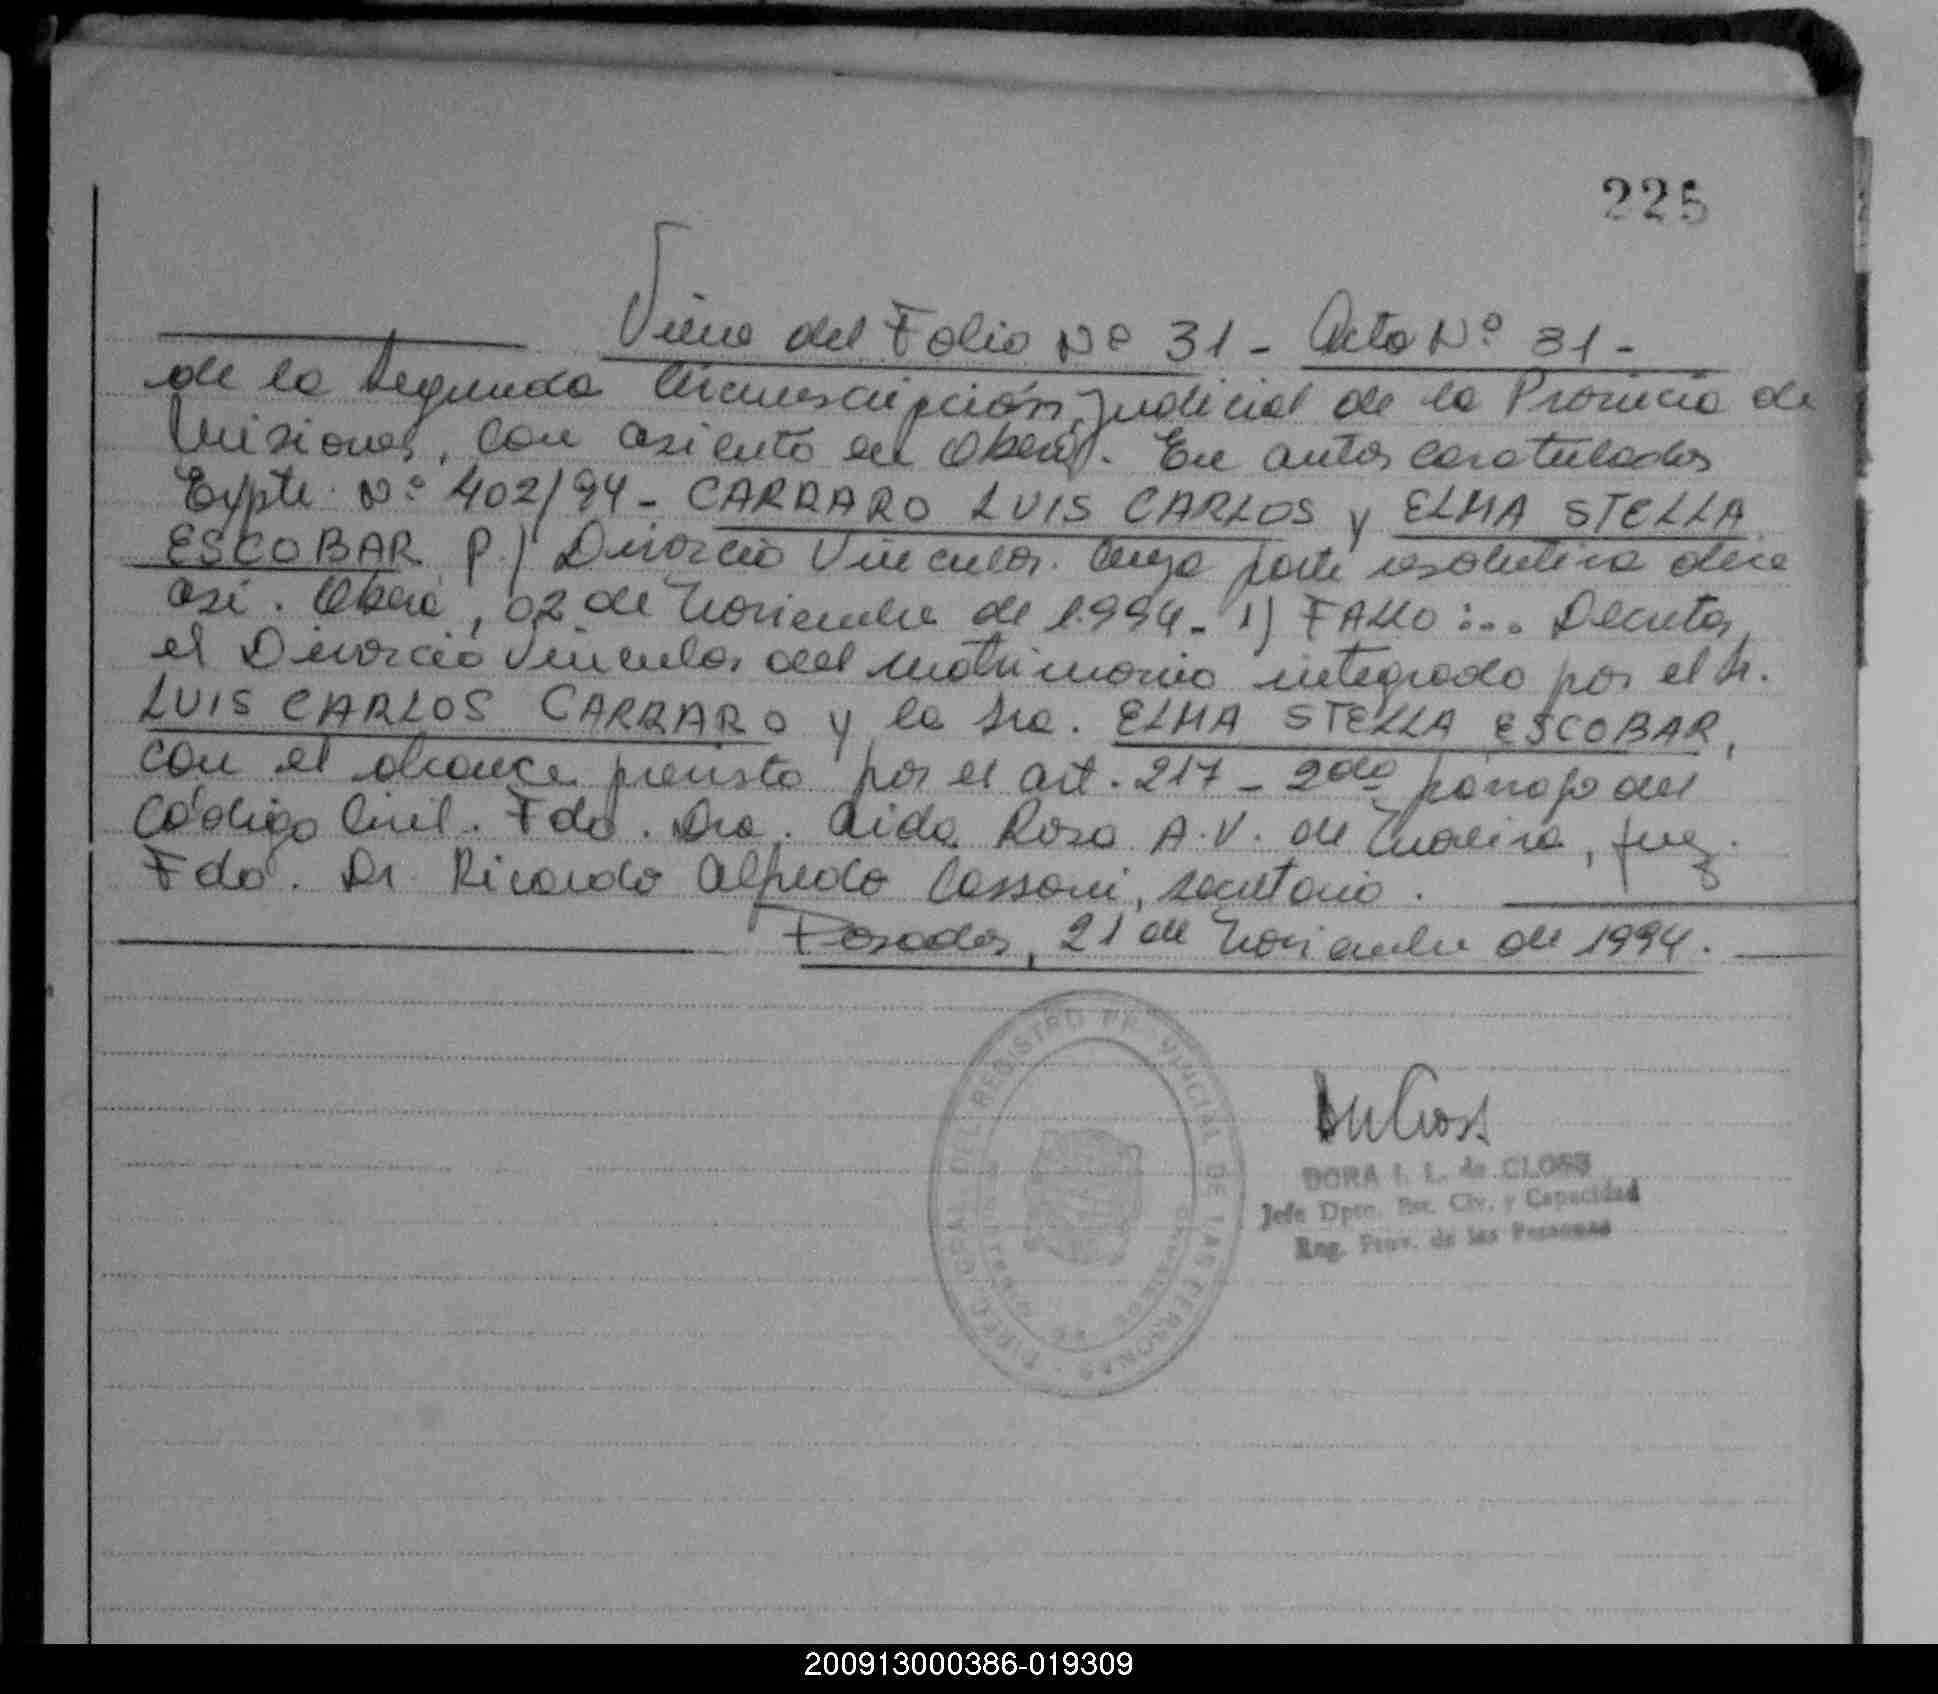 225
Viene del Folio Nº 31 - Acta Nº 31 -
de la Segunda Circunscripción Judicial de la Provincia de
Misiones, con asiento en Oberá. En autos caratulados
Expte. Nº 402/94 - CARRARO LUIS CARLOS y ELMA STELLA
ESCOBAR P/ Divorcio Vincular. Cuya parte resolutiva dice
así. Oberá, 02 de Noviembre de 1.994 - 1) FALLO :... Decretar
el Divorcio Vincular del matrimonio integrado por el Sr.
LUIS CARLOS CARRARO y la Sra. ELMA STELLA ESCOBAR,
con el alcance previsto por el art. 217 - 2do párrafo del
Código Civil. Fdo. Dra. Aida Rosa A.V. de, Juez.
Fdo. Dr. Ricardo Alfredo Cassoni, Secretario.
Posadas, 21 de Noviembre de 1994.
DIREC. GRAL. DEL REGISTRO PROVINCIAL DE LAS PERSONAS
DORA I. L. de CLOSS
Jefe Dpto. Est. Civ. y Capacidad
Reg. Prov. de las Personas
200913000386-019309